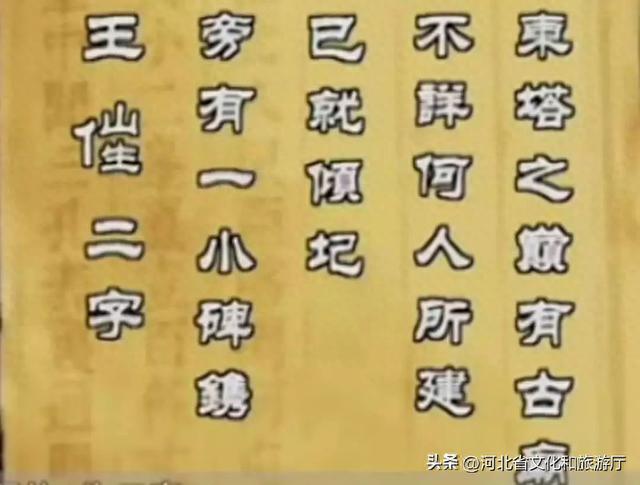 東塔之巔有古
不詳何人所建
已就傾圮
旁有一小碑鐫
王二字
头条 @河北省文化和旅游厅